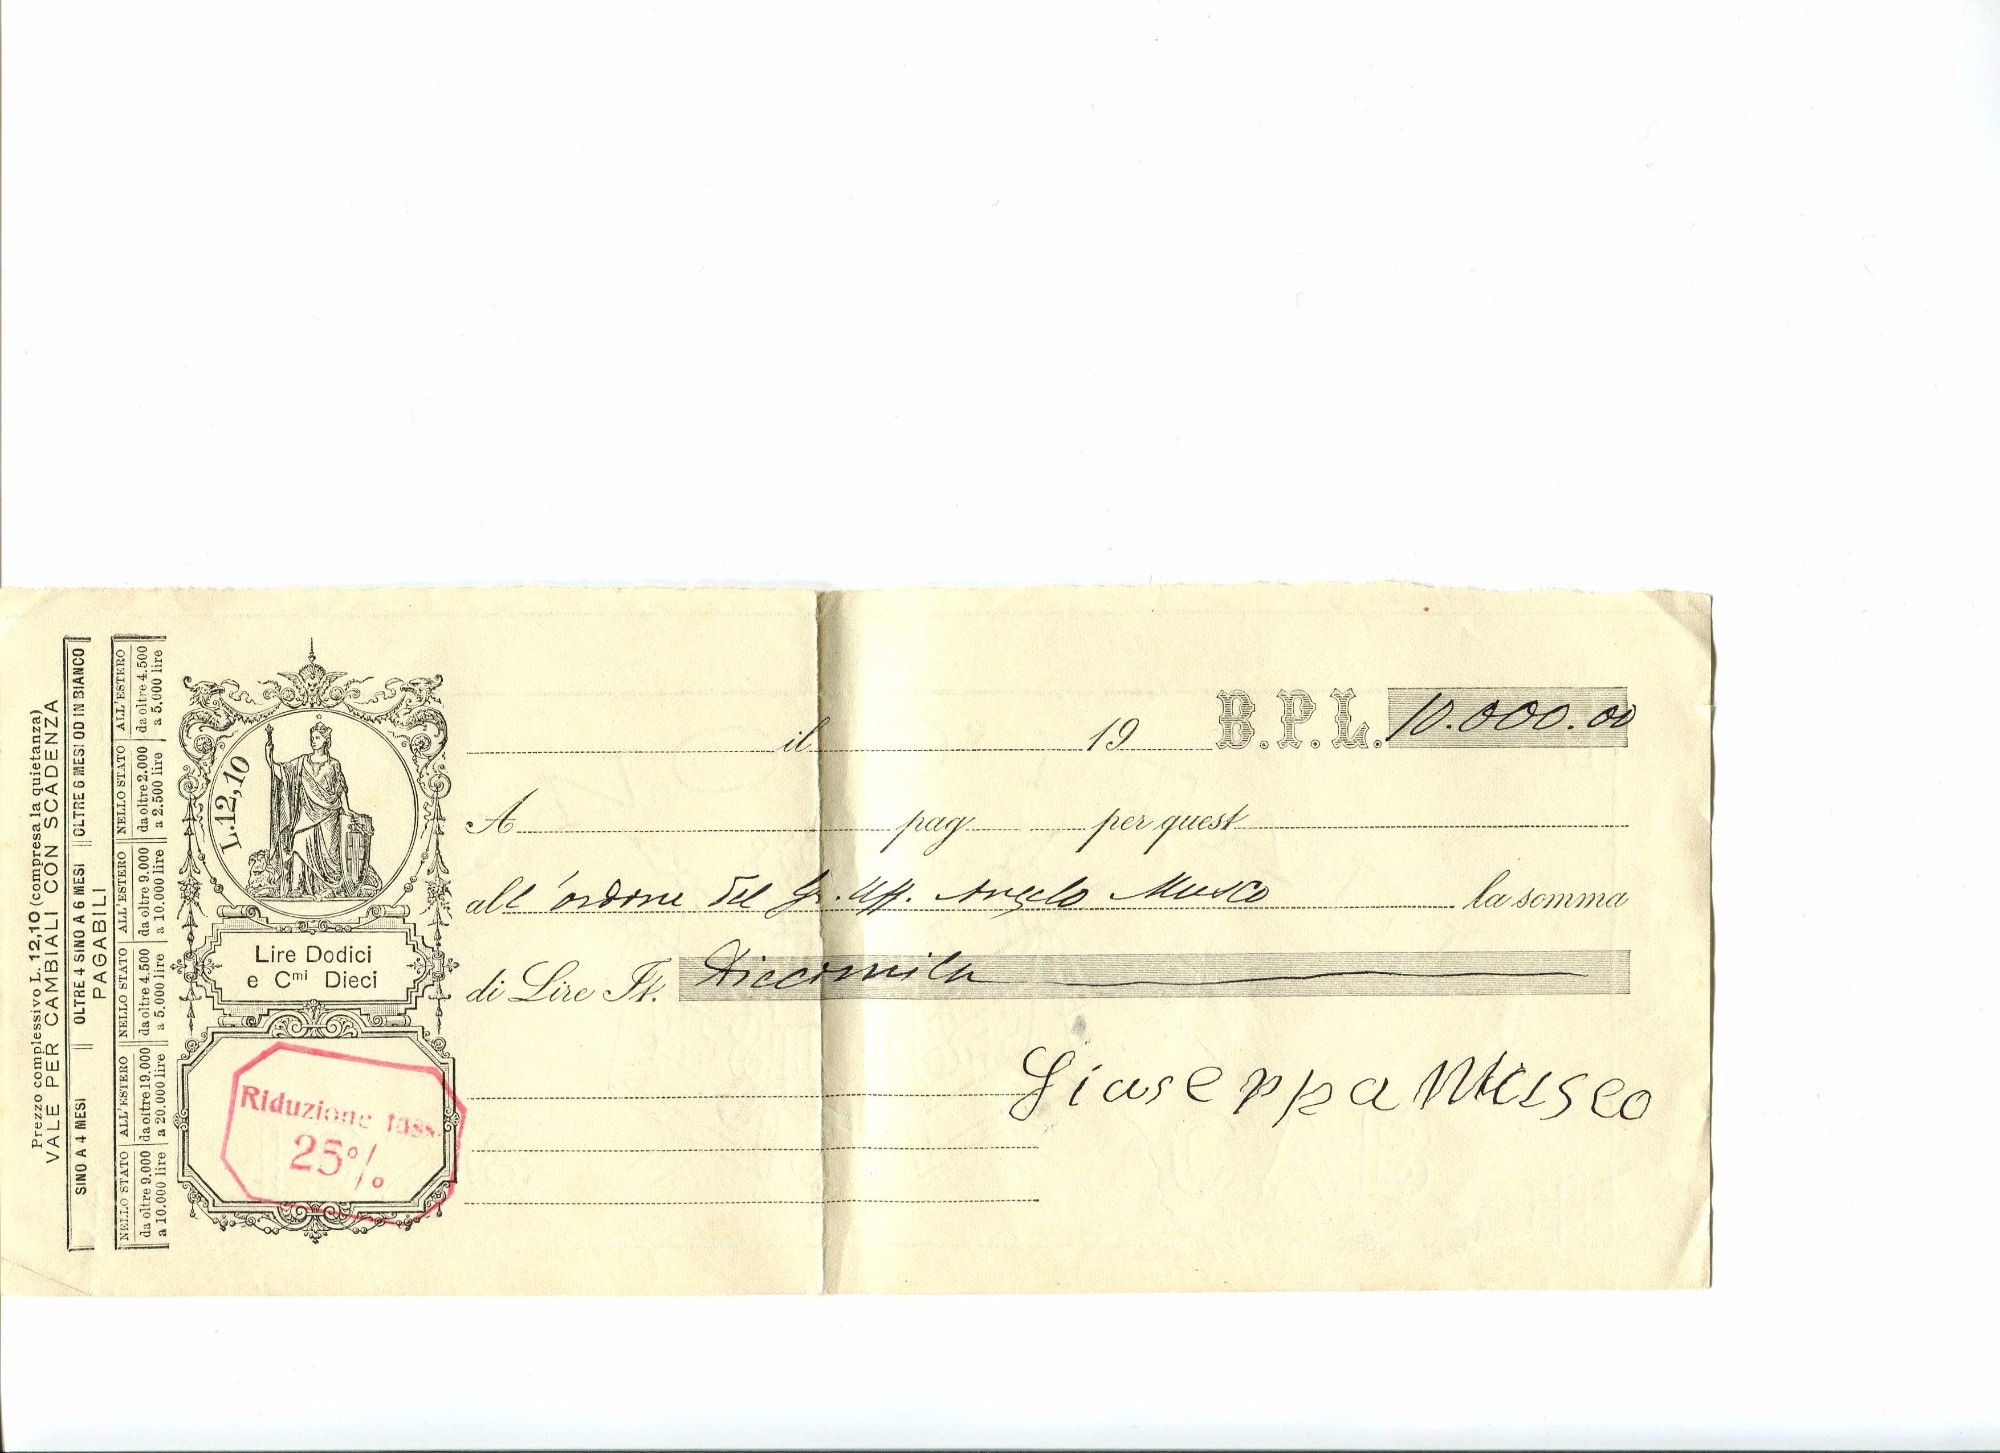 Prezzo complessivo L. 12,10 (compresa la quietanza)
VALE PER CAMBIALI CON SCADENZA
SINO A 4 MESI OLTRE 4 SINO A 6 MESI OLTRE 6 MESI OD IN BIANCO
PAGABILI
NELLO STATO ALL'ESTERO NELLO STATO ALL'ESTERO NELLO STATO ALL'ESTERO
da oltre 9.000 da oltre 19.000 da oltre 4.500 da oltre 9.000 da oltre 2.000 da oltre 4.500
a 10.000 lire a 20.000 lire a 5.000 lire a 10.000 lire a 2.500 lire a 5.000 lire
L.12,10
Lire Dodici
e Cmi Dieci
Riduzione tass.
25%
il 19 B.P.L. 10.000.00
A pag per quest
all'ordine del Gr. Uff. Angelo Musco la somma
di Lire It. Diecimila
Giuseppa Musco